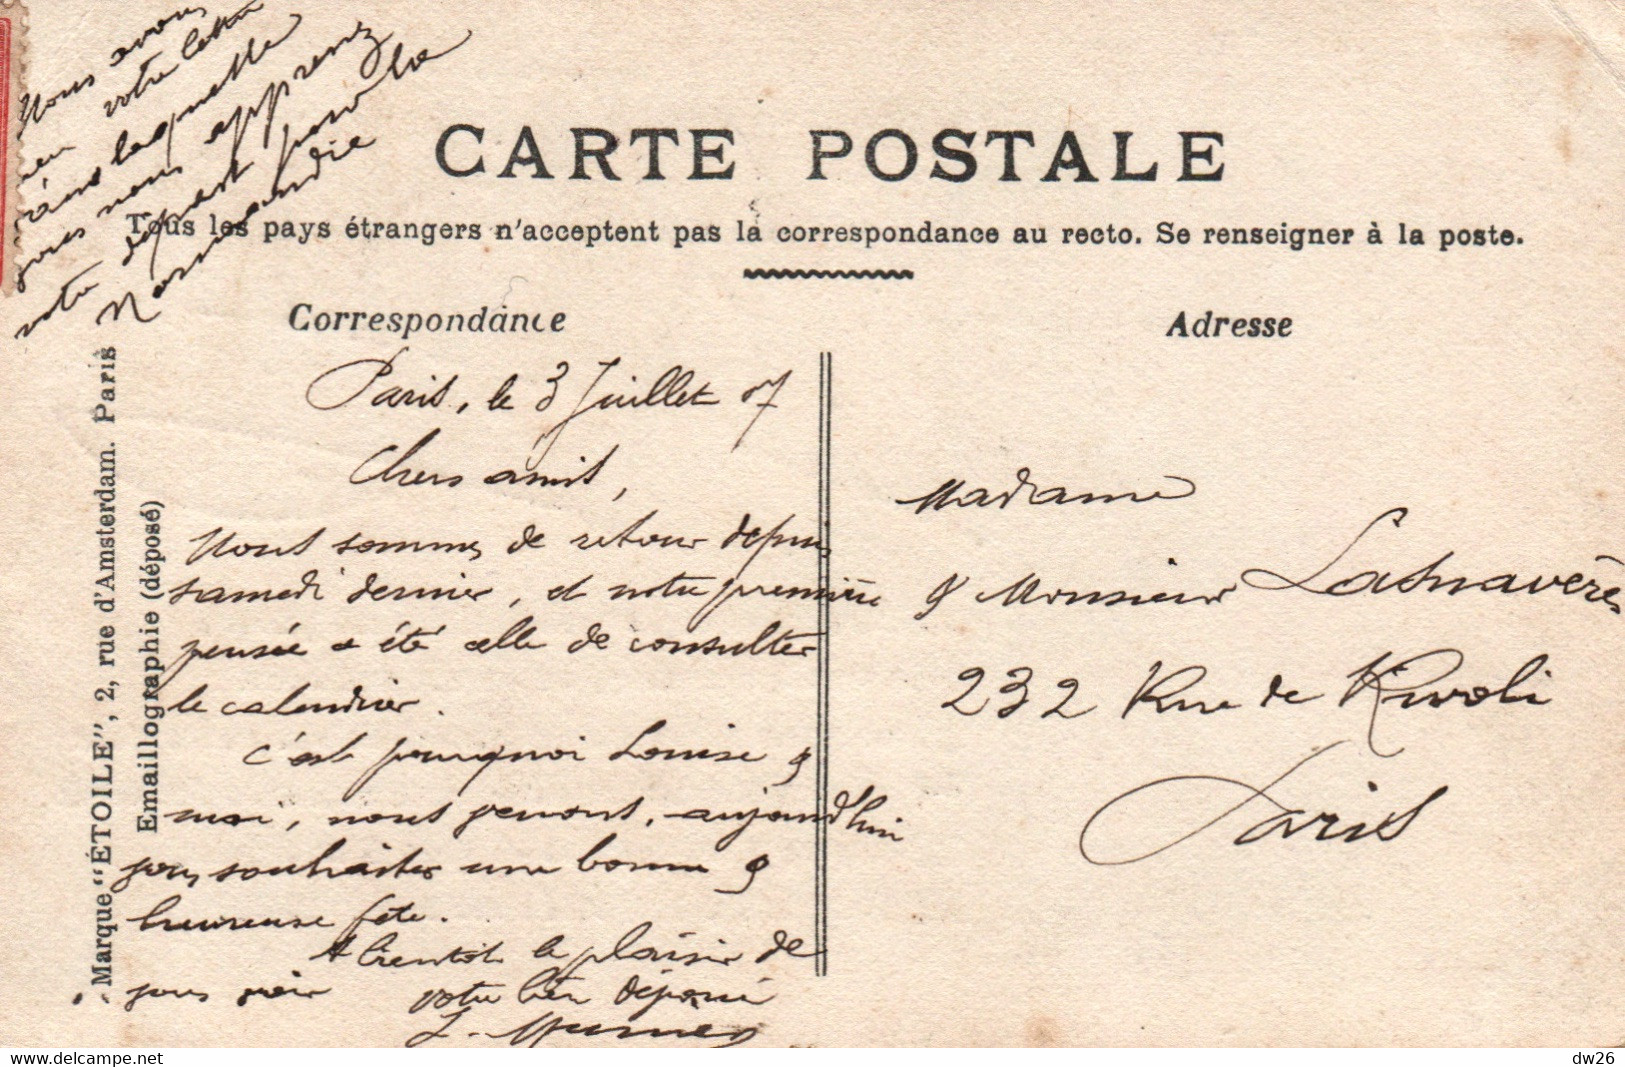 Nous avons
votre lettre
dans laquelle
vous nous apprenez
votre départ pour la
Normandie
CARTE POSTALE
Tous les pays étrangers n'acceptent pas la correspondance au recto. Se renseigner à la poste.
Correspondance
Adresse
Marque "ÉTOILE", 2, rue d'Amsterdam. Paris
Emaillographie (déposé)
Paris, le 3 Juillet 07
Chers amis,
Nous sommes de retour depuis
samedi dernier, et notre première
pensée a été celle de consulter
le calendrier.
C'est pourquoi Louise &
moi, nous venons, aujourd'hui
vous souhaiter une bonne &
heureuse fête.
A bientôt le plaisir de
vous voir votre bien
Madame
& Monsieur Lasnavères
232 Rue de Rivoli
Paris
delcampe.net
dw26